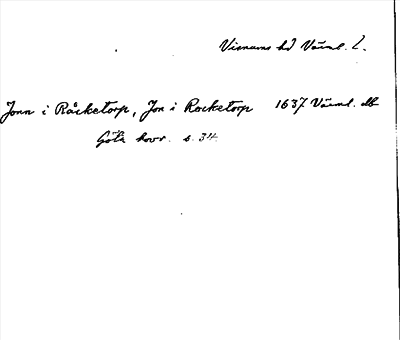 Visnums hd Värml. L.
Jonn i Råcketorp, Jon i Rocketorp 1637 Värml. db
Göta hovr. s. 34.